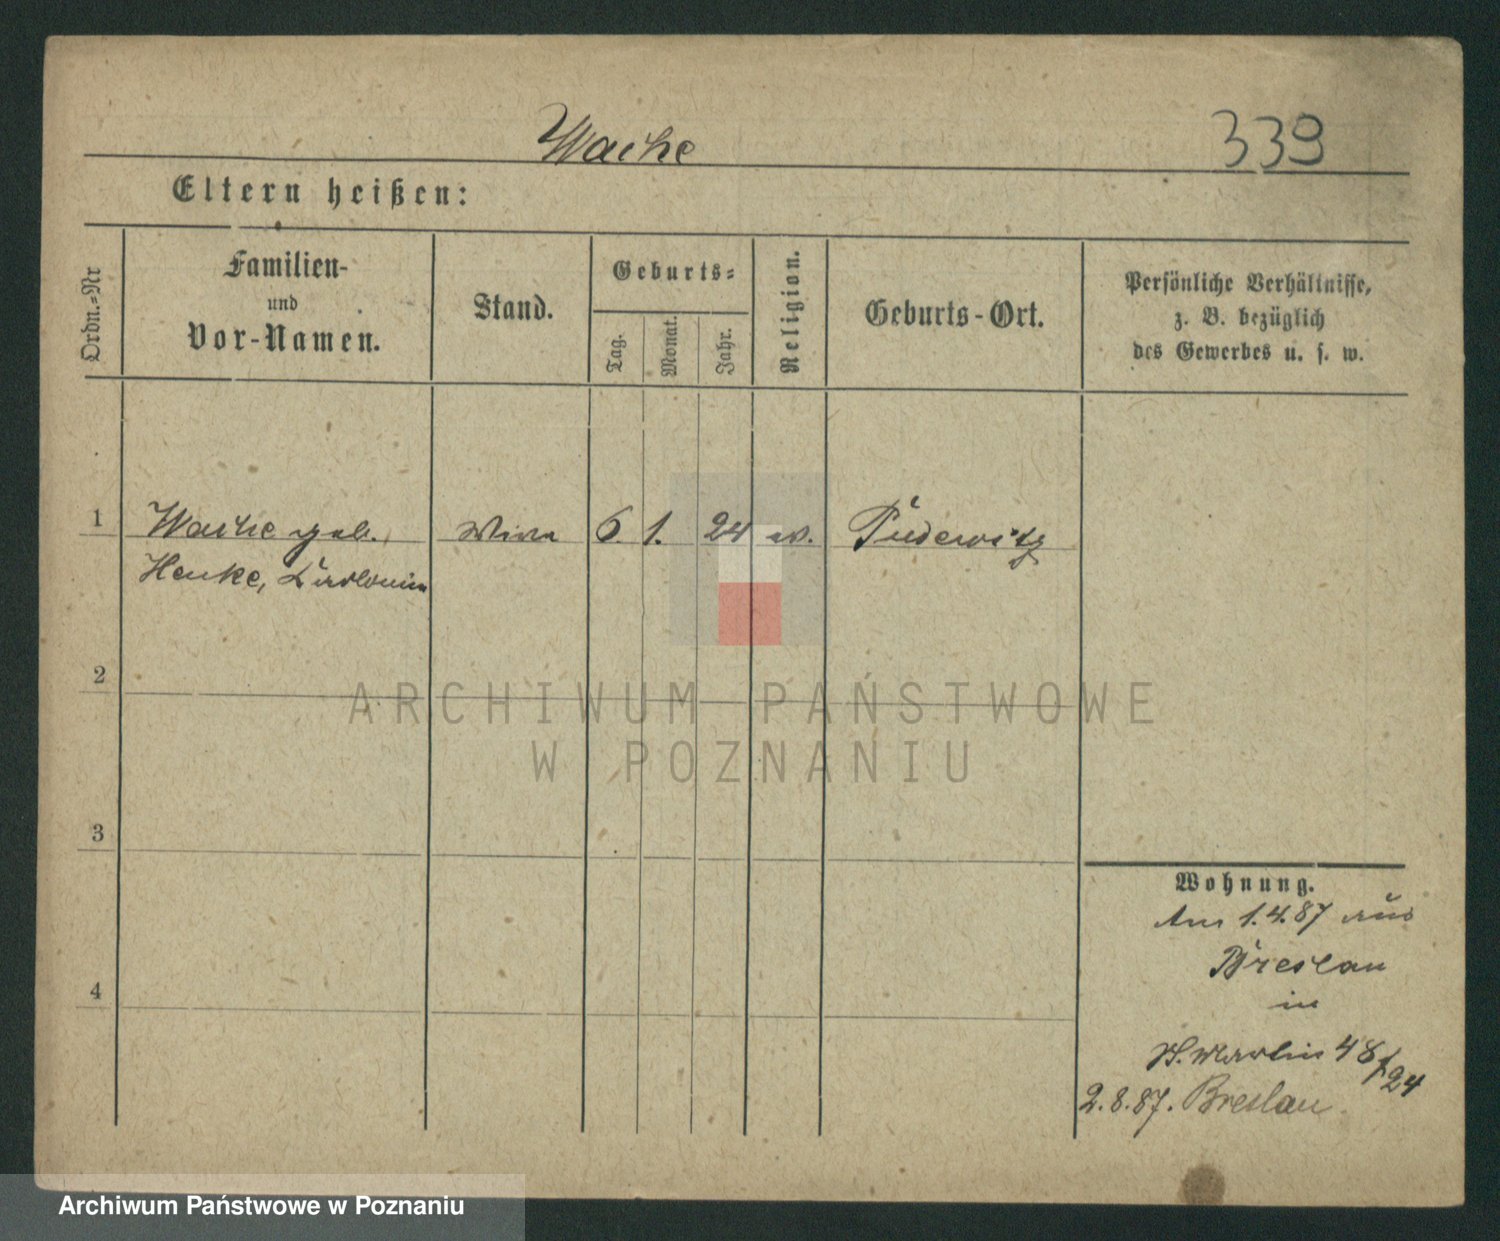 Wache
339
Eltern heißen:
Ordn.-Nr
Familien-
und
Vor-Namen.
Stand.
Geburts-
Tag.
Monat.
Jahr.
Religion.
Geburts-Ort.
Persönliche Verhältnisse,
z. B. bezüglich
des Gewerbes u. s. w.
1
Wache geb.
Henke,
6. 1. 24 ev.
Pudewitz
2
3
4
Wohnung.
Am 1.4.87 aus
Breslau
in
St. Martin 48/24
2.8.87. Breslau.
ARCHIWUM PAŃSTWOWE
W POZNANIU
Archiwum Państwowe w Poznaniu